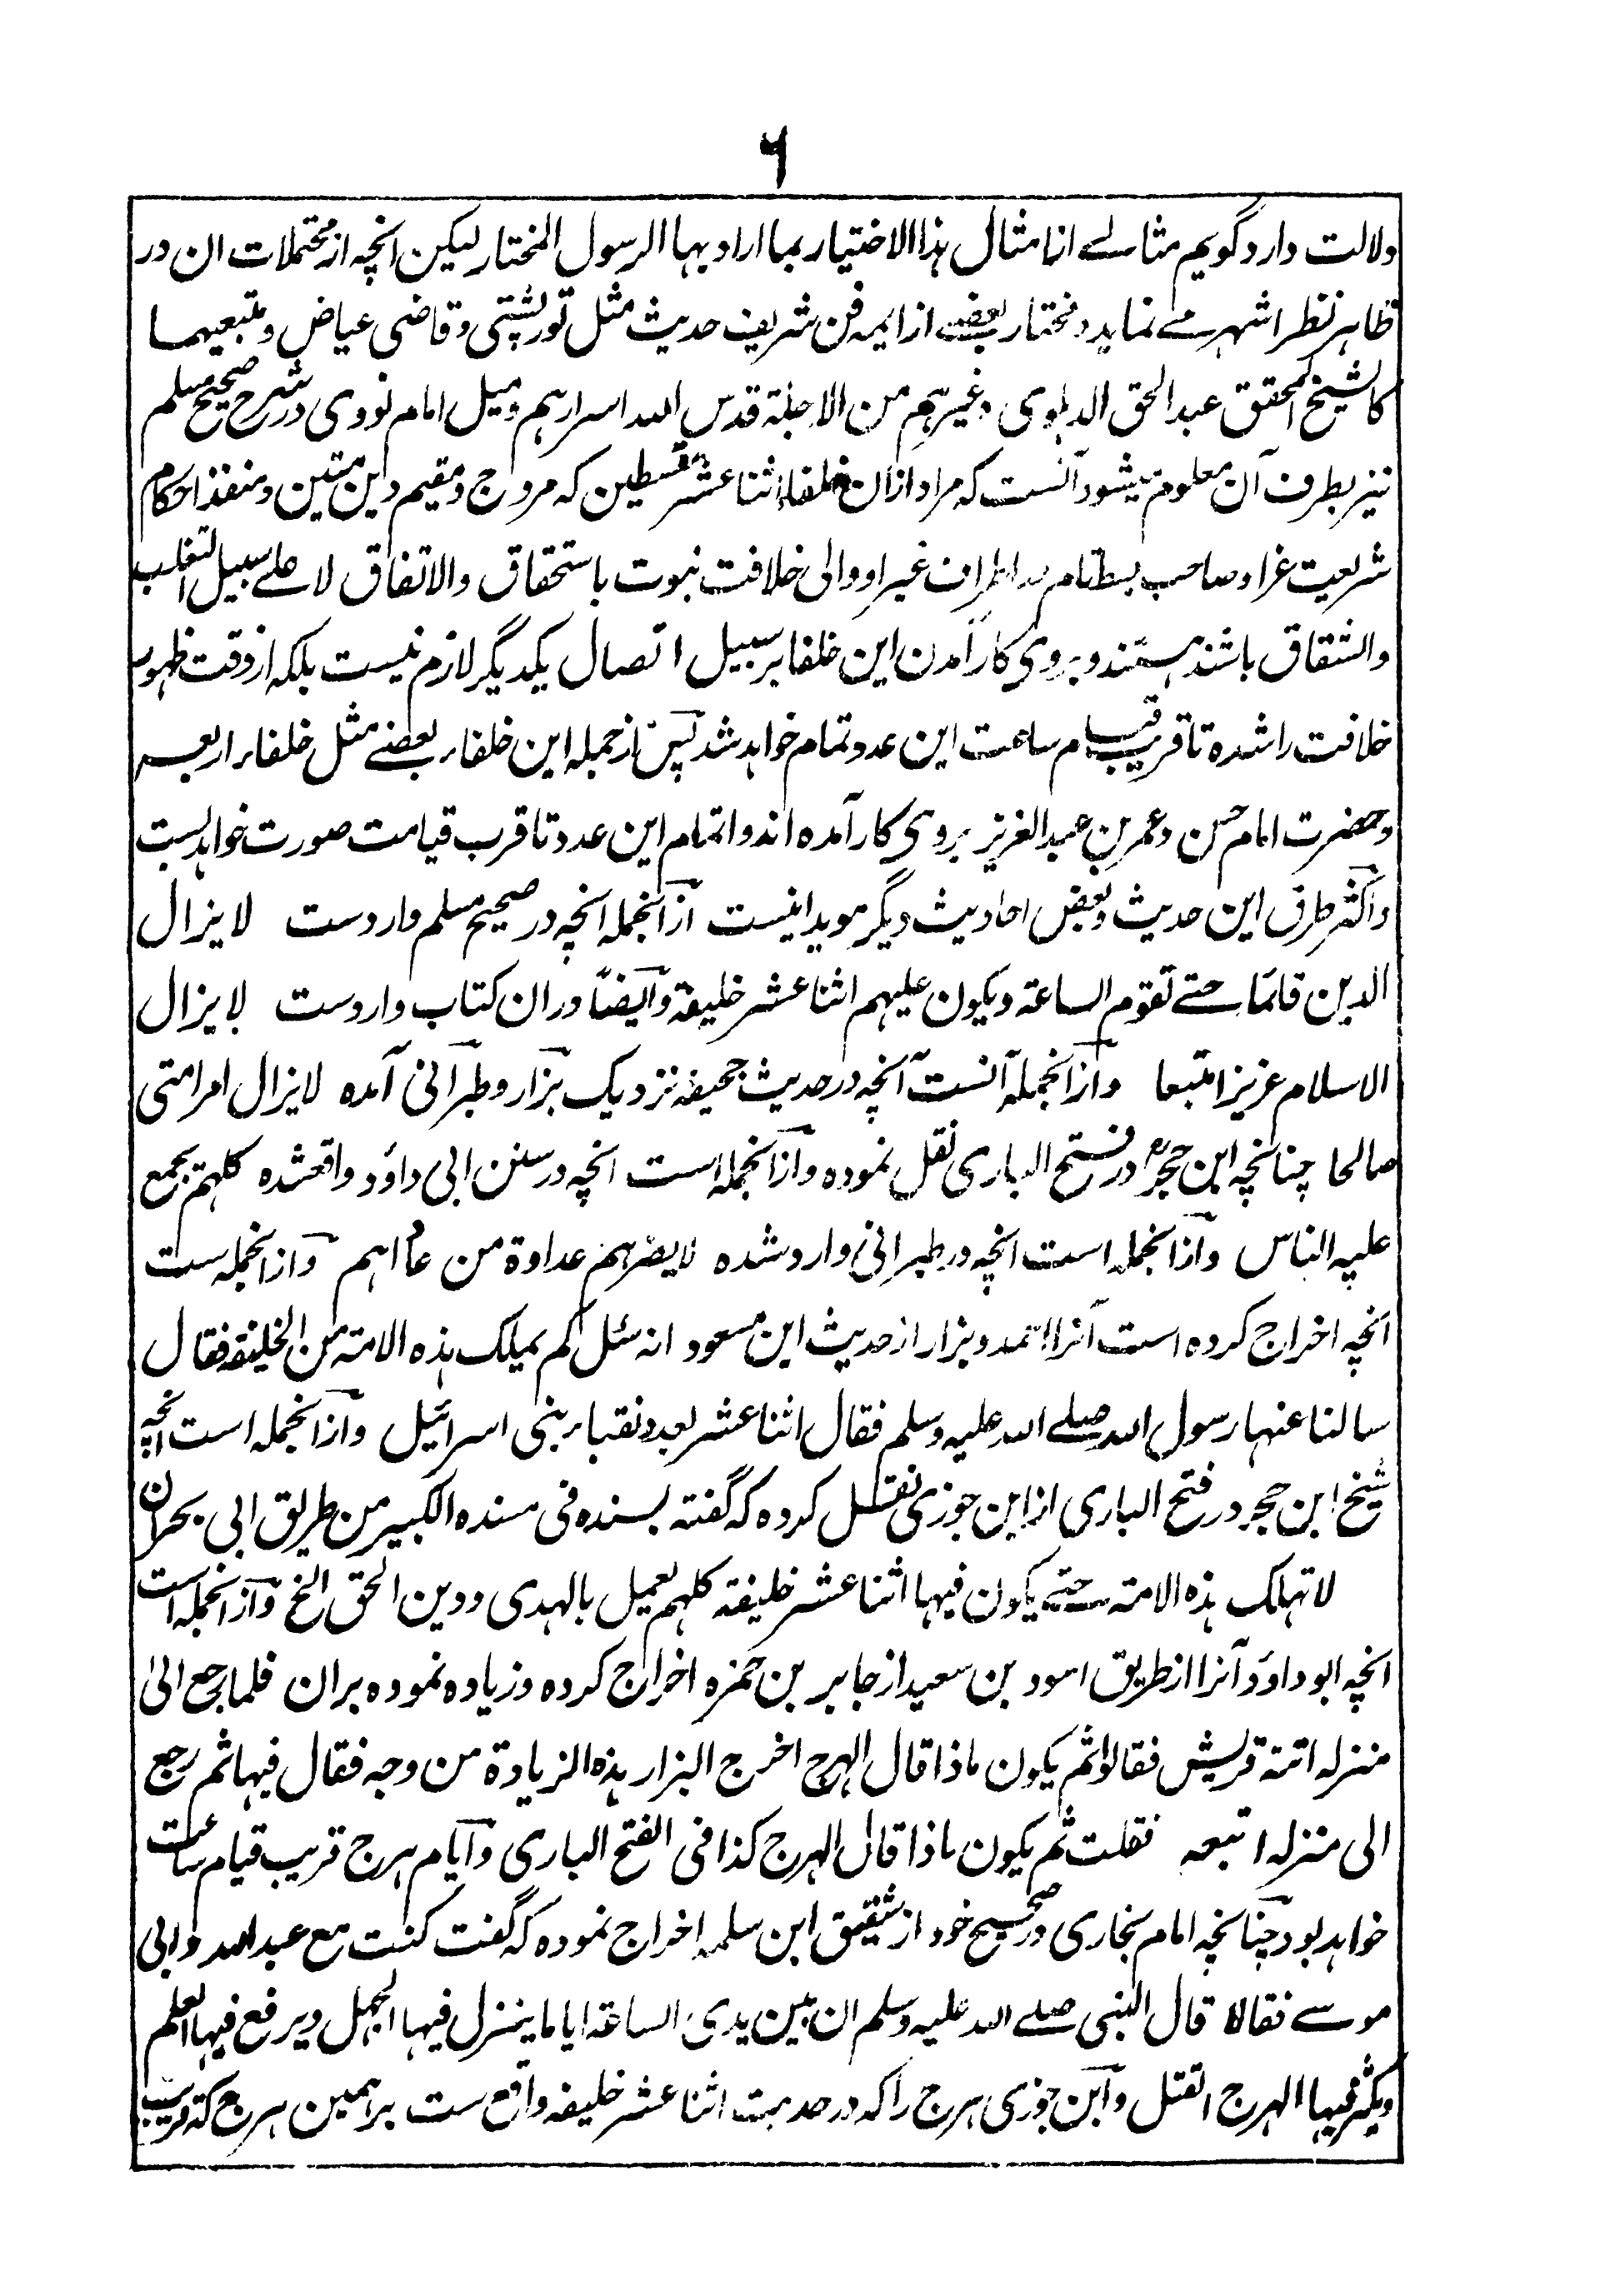 ۶
دلالت دارد گویم مثالے انا مثال ہذا الاختیار بما اراد بہا الرسول المختار لیکن انچہ از محتملات ان در
ظاہر نظر اشہر مے نماید و مختار بعضے از ایمہ فن شریف حدیث مثل تورپشتی و قاضی عیاض و متبعیہما
کالشیخ المحقق عبد الحق الدہلوی و غیرہم من الاجلۃ قدس اللہ اسرارہم و میل امام نووی در شرح صحیح مسلم
نیز بطرف آن معلوم میشود آنست کہ مراد ازان خلفاء اثنا عشر مقسطین کہ مروج و مقیم دین متین و منفذ احکام
شریعت غرا و صاحب بسط تام در اطراف غبرا و والی خلافت نبوت باستحقاق والاتفاق لا علے سبیل التغلب
والشقاق باشند ہستند و بروی کار آمدن این خلفا بر سبیل اتصال یکدیگر لازم نیست بلکہ از وقت ظہور
خلافت راشدہ تا قریب قیام ساعت این عدد تمام خواہد شد پس از جملہ این خلفاء بعضے مثل خلفاء اربعہ
و حضرت امام حسن و عمر بن عبد العزیز بروی کار آمدہ اند و اتمام این عدد تا قرب قیامت صورت خواہد بست
و اکثر طرق این حدیث و بعض احادیث دیگر موید اینست ازانجملہ انچہ در صحیح مسلم واردست لا یزال
الدین قائما حتے تقوم الساعۃ و یکون علیہم اثنا عشر خلیفۃ و ایضاً دران کتاب واردست لا یزال
الاسلام عزیزا متبعا و ازانجملہ آنست آنچہ در حدیث جحیفہ نزدیک بزار و طبرانی آمدہ لا یزال امر امتی
صالحا چنانچہ ابن حجرؒ در فتح الباری نقل نمودہ و ازانجملہ است انچہ در سنن ابی داؤد واقعشدہ کلہم یجمع
علیہ الناس و ازانجملہ است انچہ در طبرانی وارد شدہ لا یضرہم عداوۃ من عاداہم و ازانجملہ ست
انچہ اخراج کردہ است آنرا احمد و بزار از حدیث ابن مسعود انہ سئل کم یملک ہذہ الامۃ من الخلیفۃ فقال
سالنا عنہا رسول اللہ صلے اللہ علیہ وسلم فقال اثنا عشر بعدد نقباء بنی اسرائیل و ازانجملہ است انچہ
شیخ ابن حجر در فتح الباری از ابن جوزی نقل کردہ کہ گفتہ بسندہ فی مسندہ الکبیر من طریق ابی بحران
لا تہلک ہذہ الامۃ حتے یکون فیہا اثنا عشر خلیفۃ کلہم یعمل بالہدی و دین الحق الخ و ازانجملہ است
انچہ ابو داؤد آنرا از طریق اسود بن سعید از جابر بن حمزہ اخراج کردہ و زیادہ نمودہ بران فلما رجع الیٰ
منزلہ اتتہ قریش فقالوا ثم یکون ماذا قال الہرج اخرج البزار ہذہ الزیادۃ من وجہ فقال فیہا ثم رجع
الی منزلہ اتبعہ فقلت ثم یکون ماذا قال الہرج کذا فی الفتح الباری و ایام ہرج قریب قیام ساعت
خواہد بود چنانچہ امام بخاری در صحیح خود از شقیق ابن سلمہ اخراج نمودہ کہ گفت کنت مع عبد اللہ و ابی
موسے فقالا قال النبی صلے اللہ علیہ وسلم ان بین یدی الساعۃ ایاما ینزل فیہا الجہل و یرفع فیہا العلم
و یکثر فیہا الہرج القتل و ابن جوزی ہرج را کہ در حدیث اثنا عشر خلیفہ واقع ست بر ہمین ہرج کہ قریب